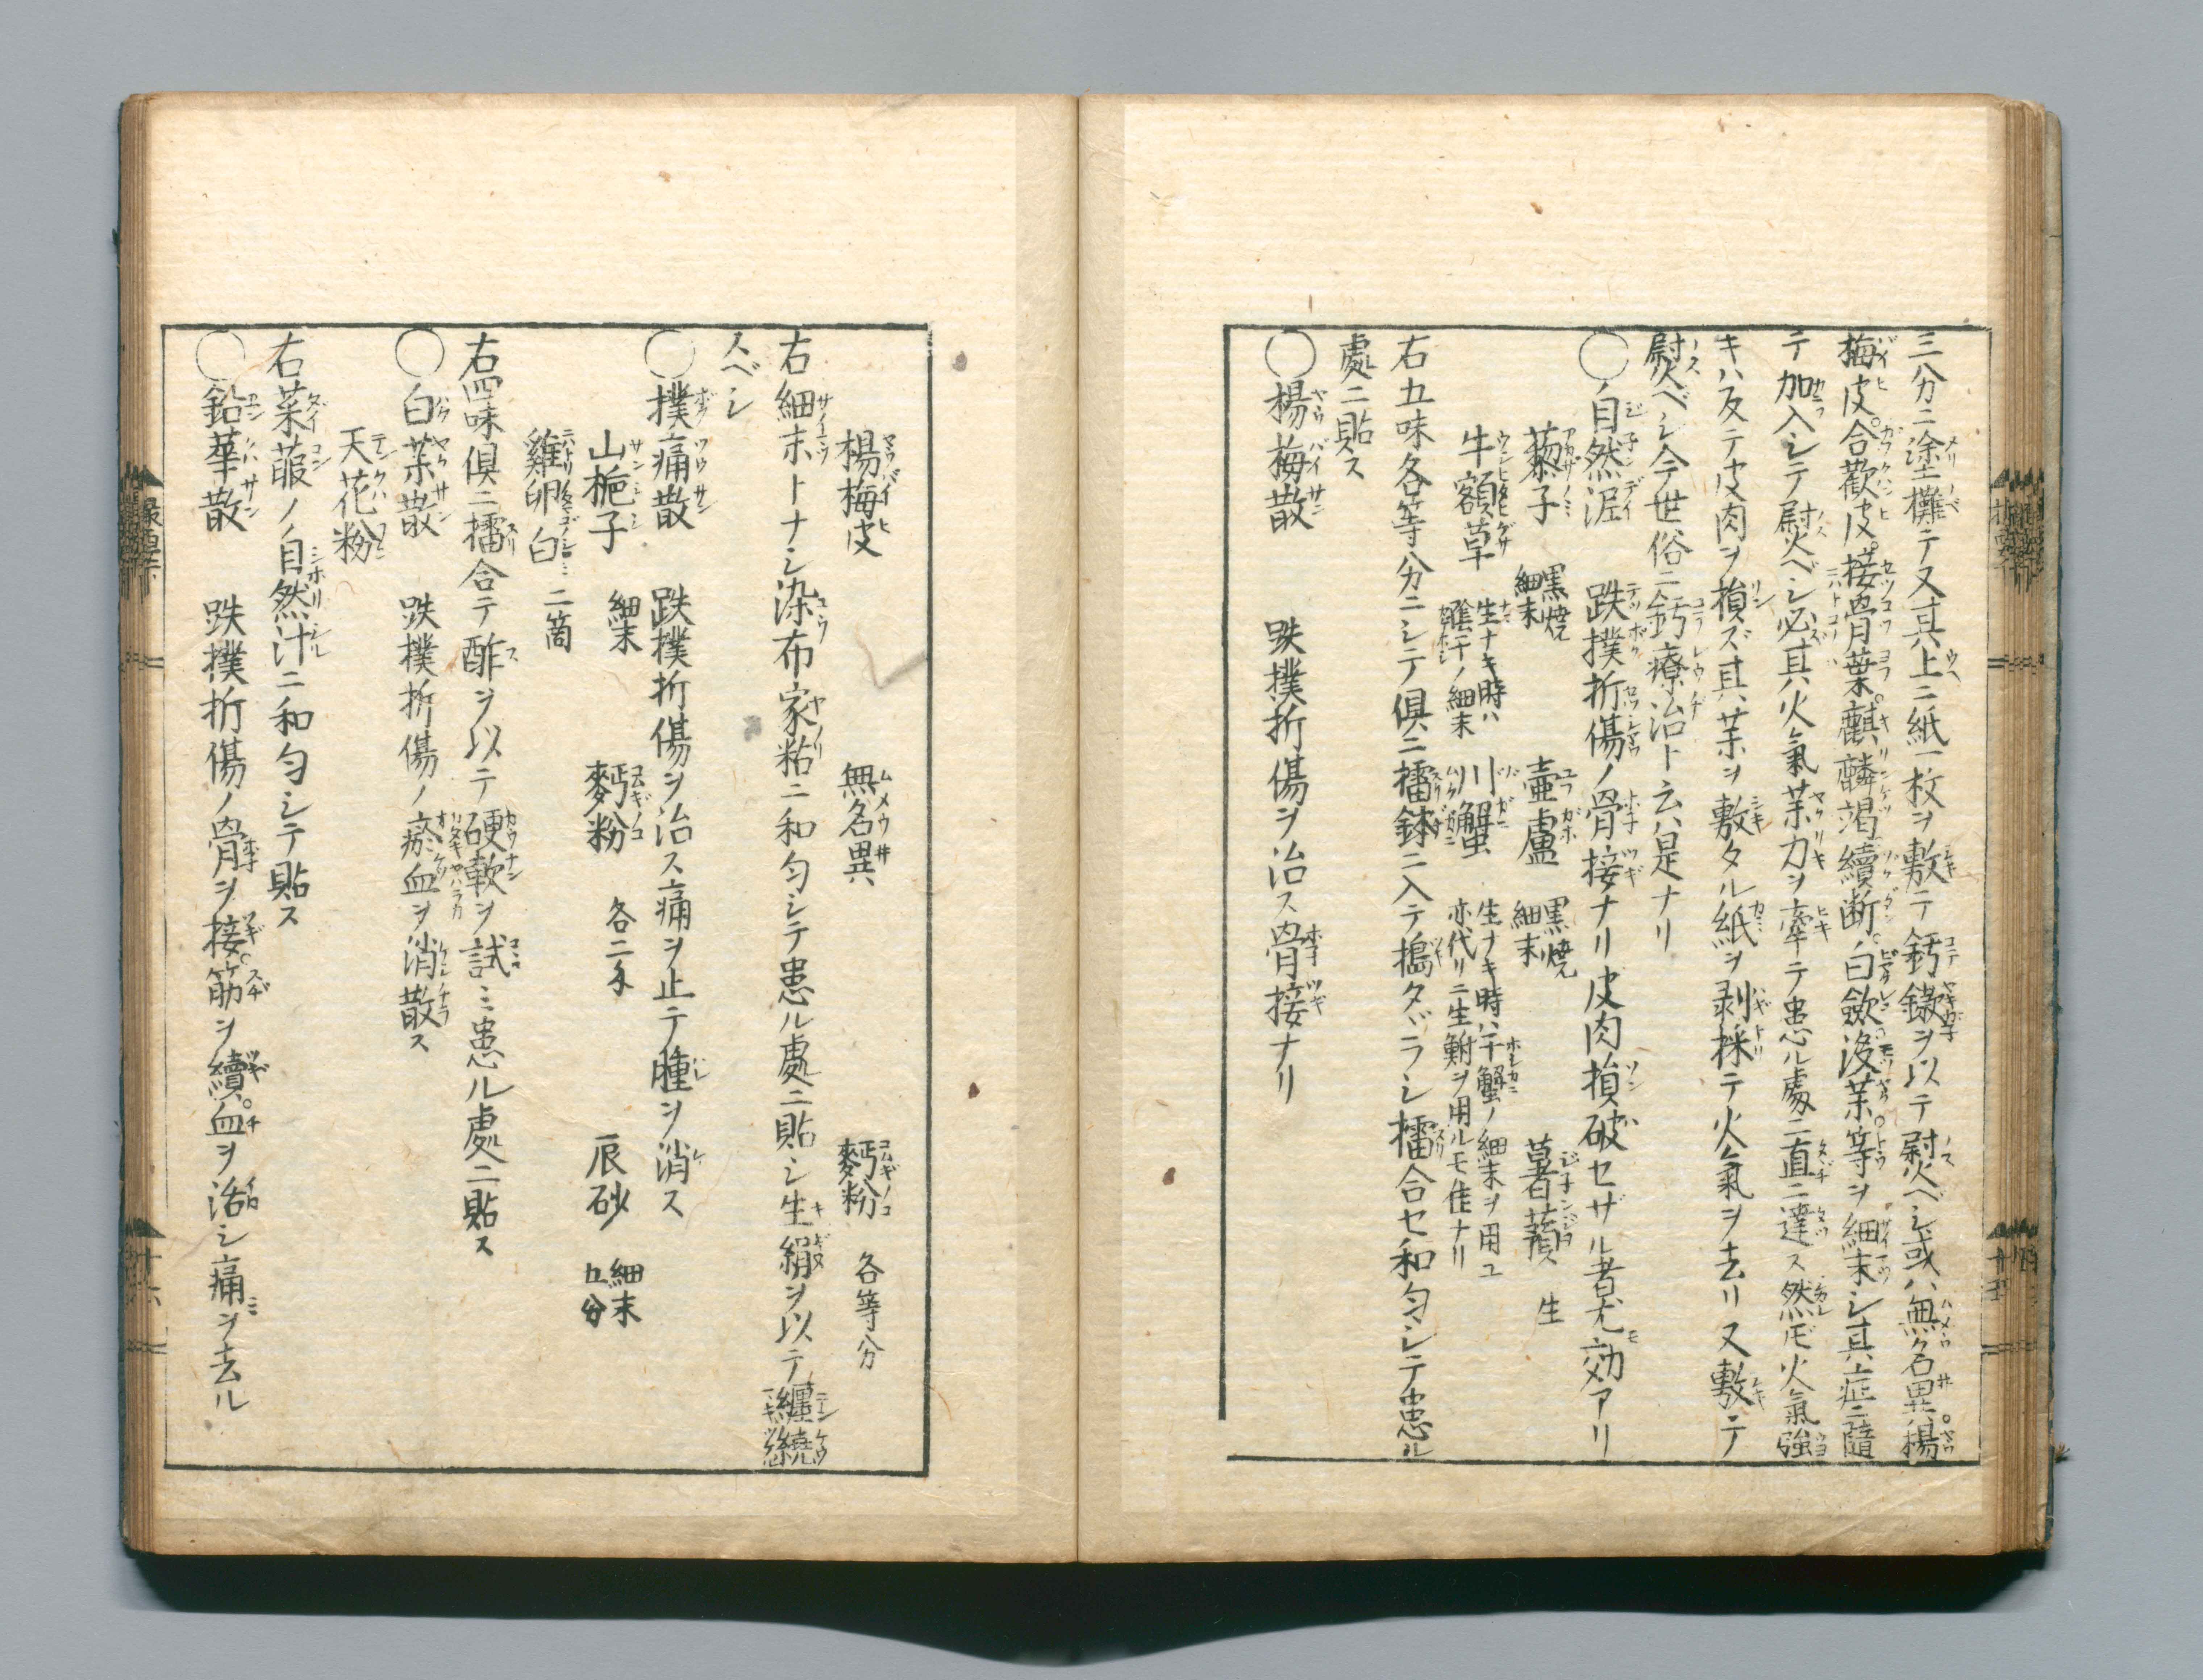 三八分ニ塗攤テ又其上ニ紙一枚ヲ敷テ鈣鏾ヲ以テ熨ベシ或ハ無名異。楊
梅皮。合歡皮。接骨葉。麒麟竭。續断。白斂。没茱等ヲ細末シ其症ニ隨
テ加入シテ熨ベシ必其火氣茱力ヲ牽テ患ル處ニ直ニ達ス然𪜈火氣強
キハ反テ皮肉ヲ損ズ其茱ヲ敷タル紙ヲ剥採テ火氣ヲ去リ又敷テ
熨ベシ今世俗ニ鈣療治ト云ハ是ナリ
〇自然泥 跌撲折傷ノ骨接ナリ皮肉損破セザル者尤効アリ
藜子 黒焼細末 壷盧 黒焼細末 薯蕷 生
牛額草 生ナキ時ハ陰干ノ細末 川蟹 生ナキ時ハ干蟹ノ細末ヲ用ユ亦代リニ生鮒ヲ用ルモ佳ナリ
右五味各等分ニシテ倶ニ擂鉢ニ入テ搗タヾラシ擂合セ和匀シテ患ル
處ニ貼ス
〇楊梅散 跌撲折傷ヲ治ス骨接ナリ
楊梅皮 無名異 麪粉 各等分
右細末トナシ染布家粘ニ和匀シテ患ル處ニ貼シ生絹ヲ以テ纏繞
スベシ
〇撲痛散 跌撲折傷ヲ治ス痛ヲ止テ腫ヲ消ス
山梔子 細末 麪粉 各二匁 辰砂 細末五分
雞卵白 二箇
右四味倶ニ擂合テ酢ヲ以テ硬軟ヲ試ミ患ル處ニ貼ス
〇白茱散 跌撲折傷ノ瘀血ヲ消散ス
天花粉
右菜菔ノ自然汁ニ和匀シテ貼ス
〇鉛華散 跌撲折傷ノ骨ヲ接。筋ヲ續。血ヲ活シ痛ヲ去ル
十六